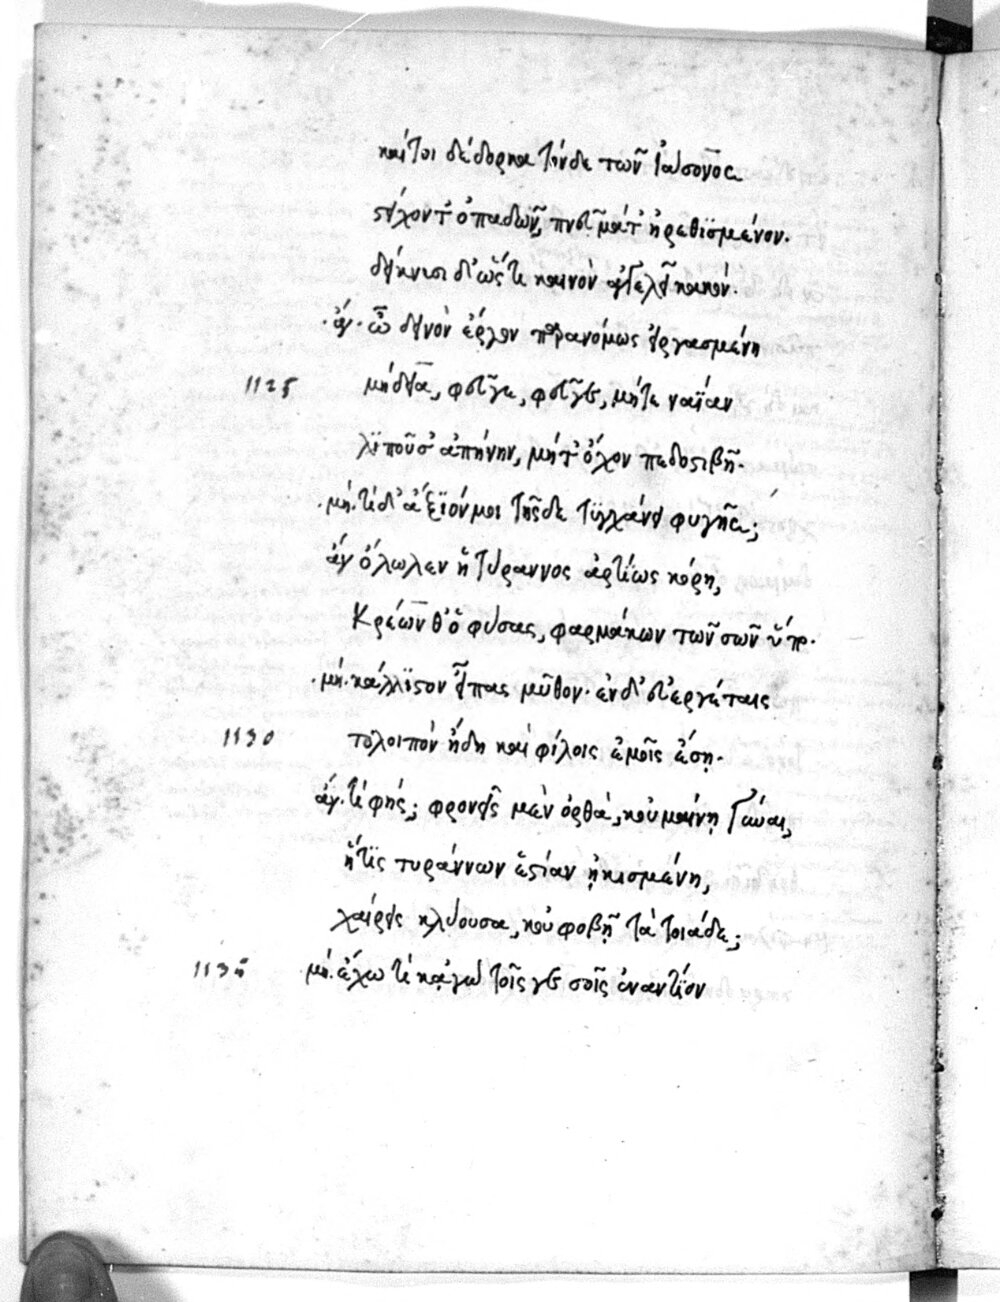 καίτοι δέδορκα τόνδε τῶν Ἰάσονος
στείχοντ' ὀπαδῶν, πνεῦμα τ' ἠρεθισμένον.
δείκνυσι δ' ὥς τι καινὸν ἀγγελεῖ κακόν.
ἄγ. ὦ δεινὸν ἔργον παρανόμως εἰργασμένη
1125 μήδεια, φεῦγε, φεῦγε, μήτε ναΐαν
λιποῦσ' ἀπήνην, μήτ' ὄχον πεδοστιβῆ.
μή. τί δ' ἄξιόν μοι τῆσδε τυγχάνει φυγῆς;
ἄγ ὄλωλεν ἡ τύραννος ἀρτίως κόρη,
Κρέων θ' ὁ φύσας, φαρμάκων τῶν σῶν ὕπ.
μή. κάλλιστον εἶπας μῦθον. ἐν δ' εὐεργέταις
1130 τολοιπὸν ἤδη καὶ φίλοις ἐμοῖς ἔση.
ἄγ. τί φής; φρονεῖς μὲν ὀρθὰ, κοὐ μαίνη Γύναι,
ἥτις τυράννων ἑστίαν ἠκισμένη,
χαίρεις κλύουσα, κοὐ φοβῆ τὰ τοιάδε;
1135 μή. ἔχω τι κἀγὼ τοῖς γε σοῖς ἐναντίον